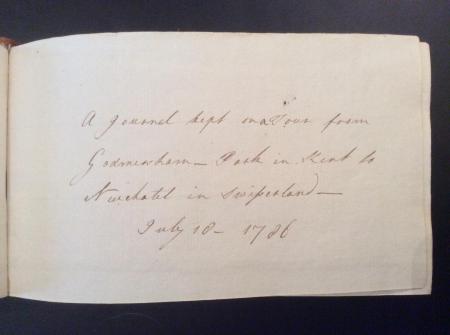 A Journel kept on a Tour from
Godmersham – Park in Kent to
Neuchatel in Swiperland –
July 18 – 1786